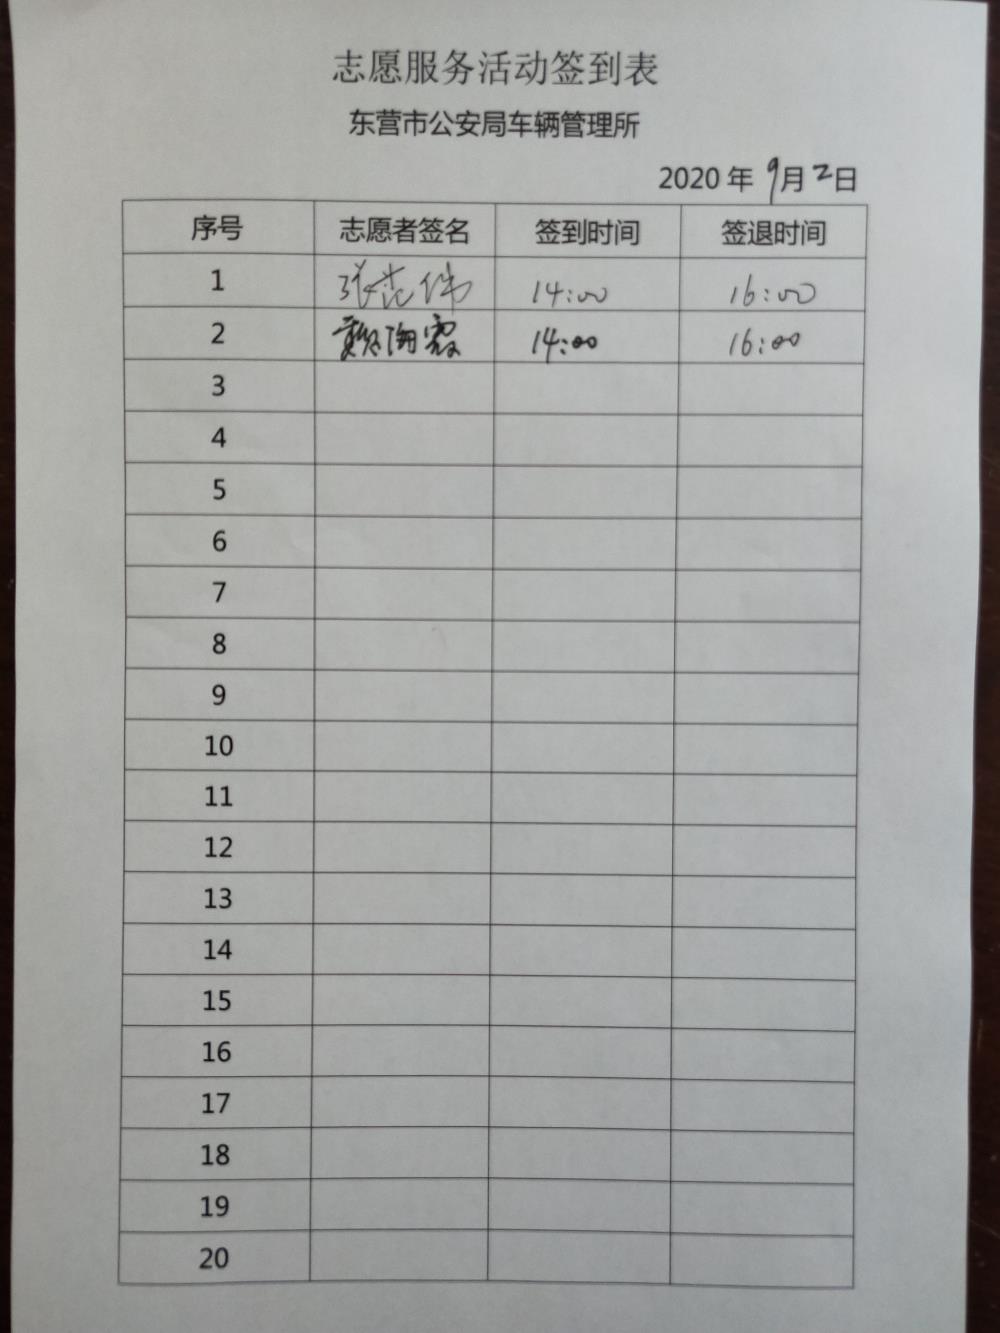 志愿服务活动签到表
东营市公安局车辆管理所
2020 年 9月 2日
序号 志愿者签名 签到时间 签退时间
1 张 伟 14:00 16:00
2 海霞 14:00 16:00
3
4
5
6
7
8
9
10
11
12
13
14
15
16
17
18
19
20